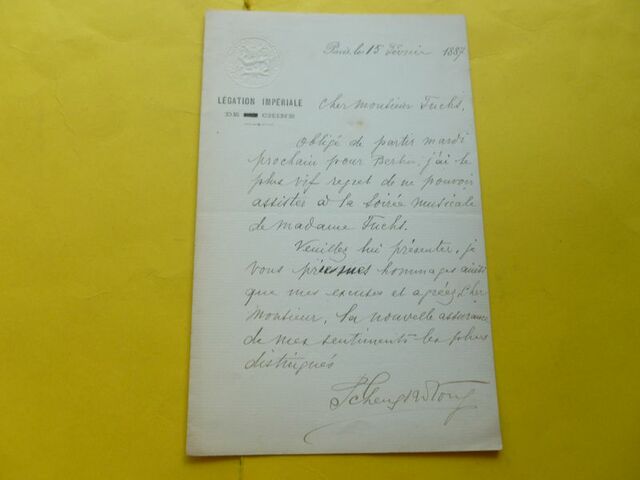 Paris, le 15 février 1887
LÉGATION IMPÉRIALE
DE CHINE
Cher Monsieur Fuchs,
Obligé de partir mardi
prochain pour Berlin, j'ai le
plus vif regret de ne pouvoir
assister à la soirée musicale
de Madame Fuchs.
Veuillez lui présenter, je
vous prie, mes hommages ainsi
que mes excuses et agréez, Cher
Monsieur, la nouvelle assurance
de mes sentiments les plus
distingués
Tcheng Ki Tong